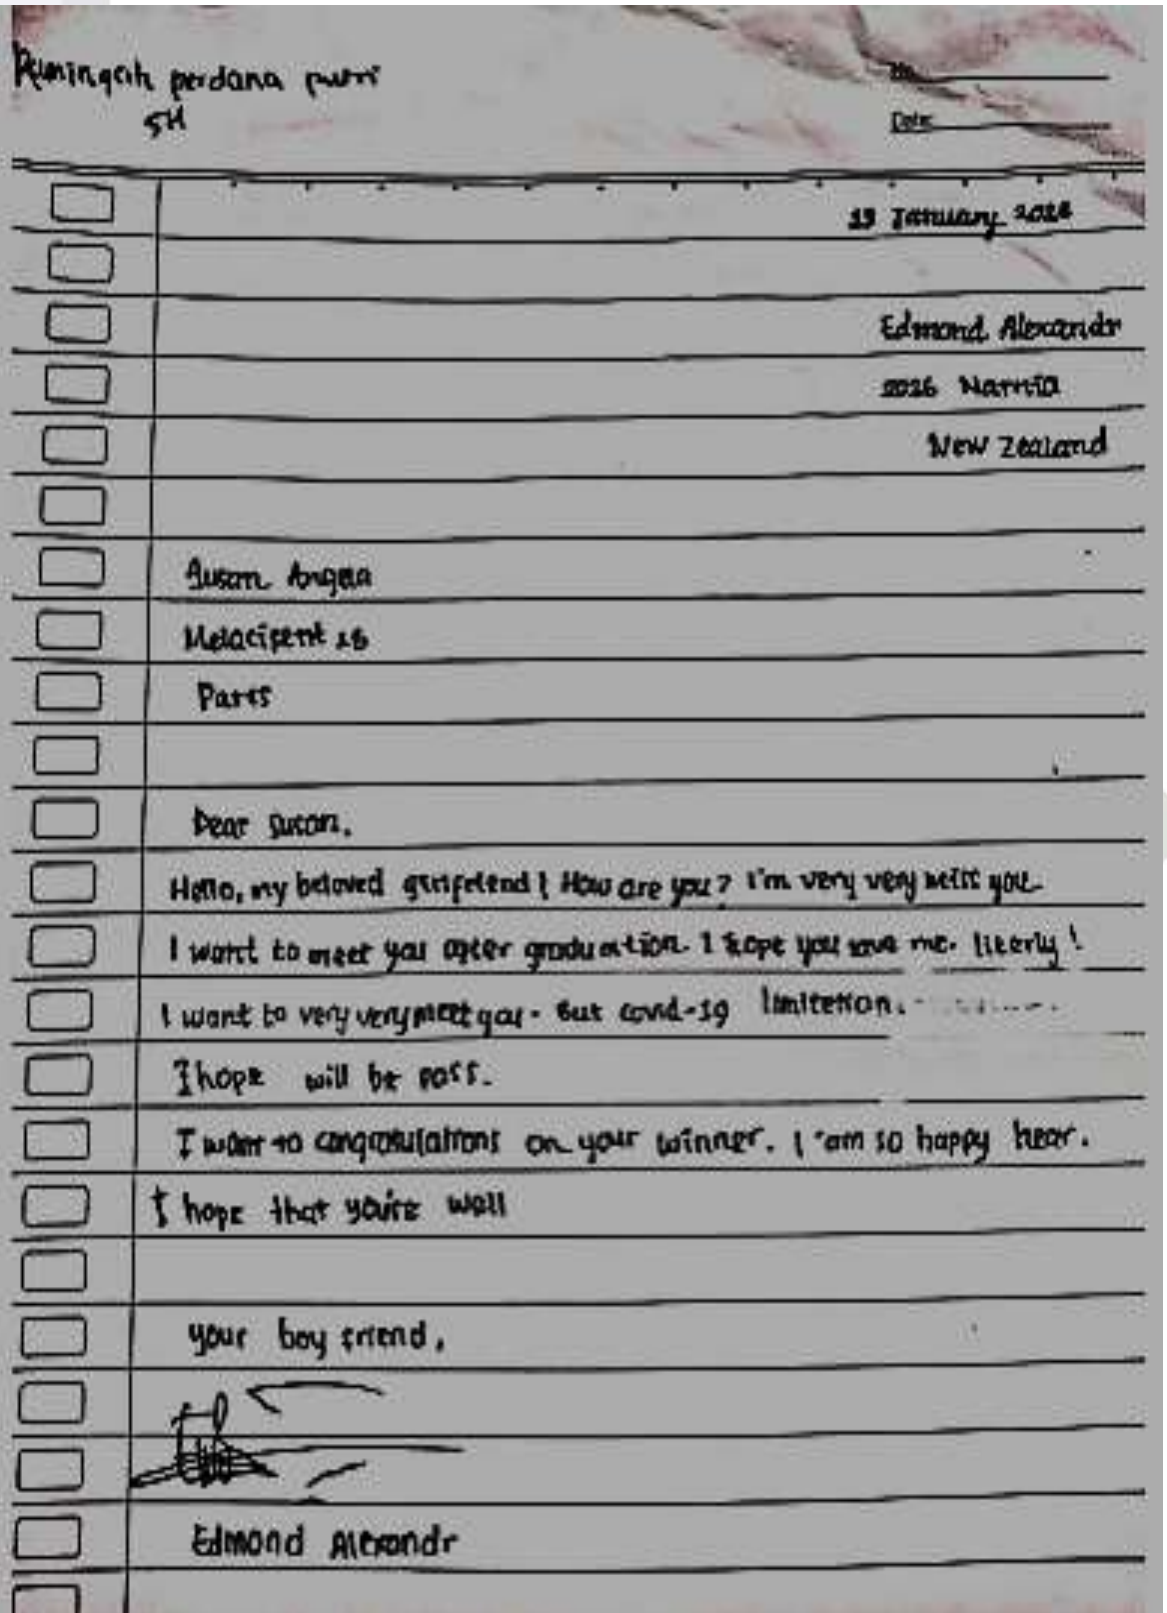 perdana putri
5H
No.
Date
January
Edmond Alexandr
2026 Narnia
New Zealand
Susan Angela
Paris
Dear Susan,
Hello, my beloved girlfriend! How are you? I'm very very miss you
I want to meet you after graduation. I hope you love me. literly!
I want to very very meet you. But covid-19 limitation.
I hope will be pass.
I want to congratulations on your winner. I am so happy hear.
I hope that you're well
your boy friend,
Edmond Alexandr